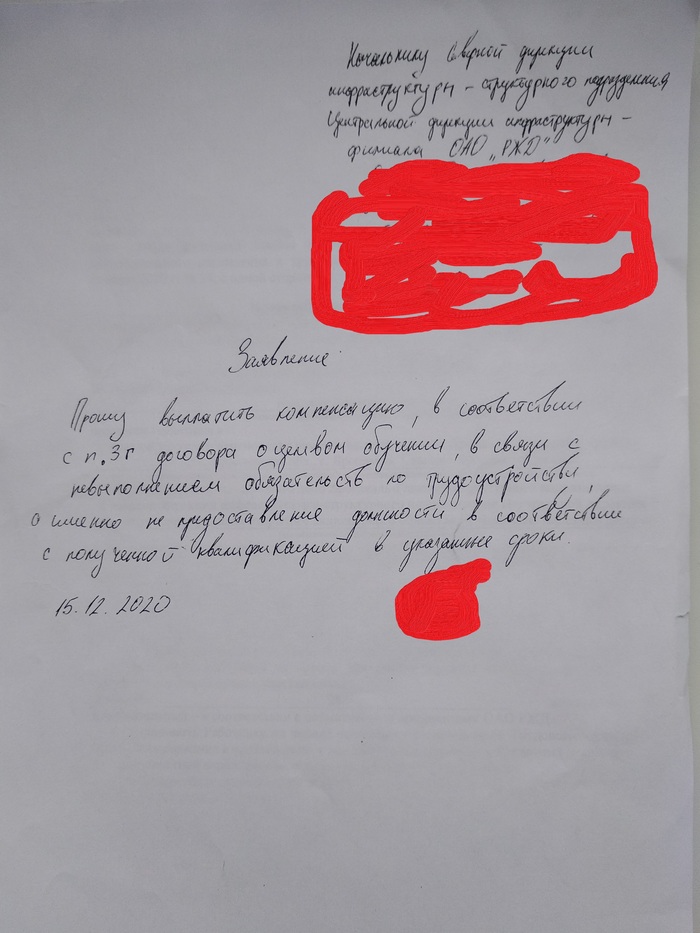 Начальнику Северной дирекции
инфраструктуры - структурного подразделения
Центральной дирекции инфраструктуры -
филиала ОАО "РЖД"
Заявление
Прошу выплатить компенсацию, в соответствии
с п. 3г договора о целевом обучении, в связи с
невыполнением обязательств по трудоустройству,
а именно не предоставление должности в соответствии
с полученной квалификацией в указанные сроки.
15.12.2020